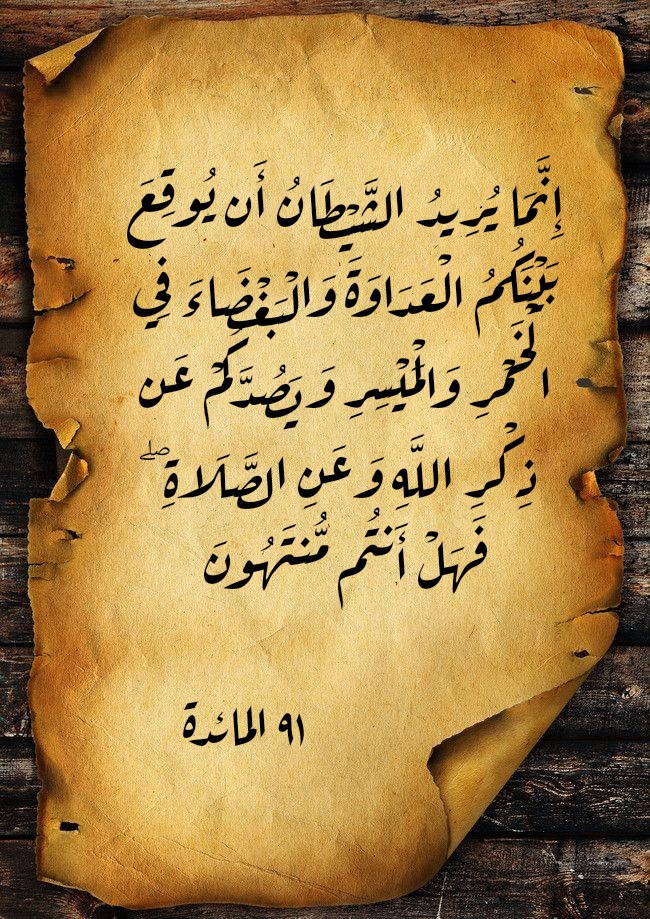 إِنَّمَا يُرِيدُ الشَّيْطَانُ أَن يُوقِعَ
بَيْنَكُمُ الْعَدَاوَةَ وَالْبَغْضَاءَ فِي
الْخَمْرِ وَالْمَيْسِرِ وَيَصُدَّكُمْ عَن
ذِكْرِ اللَّهِ وَعَنِ الصَّلَاةِ ۖ
فَهَلْ أَنتُم مُّنتَهُونَ
٩١ المائدة